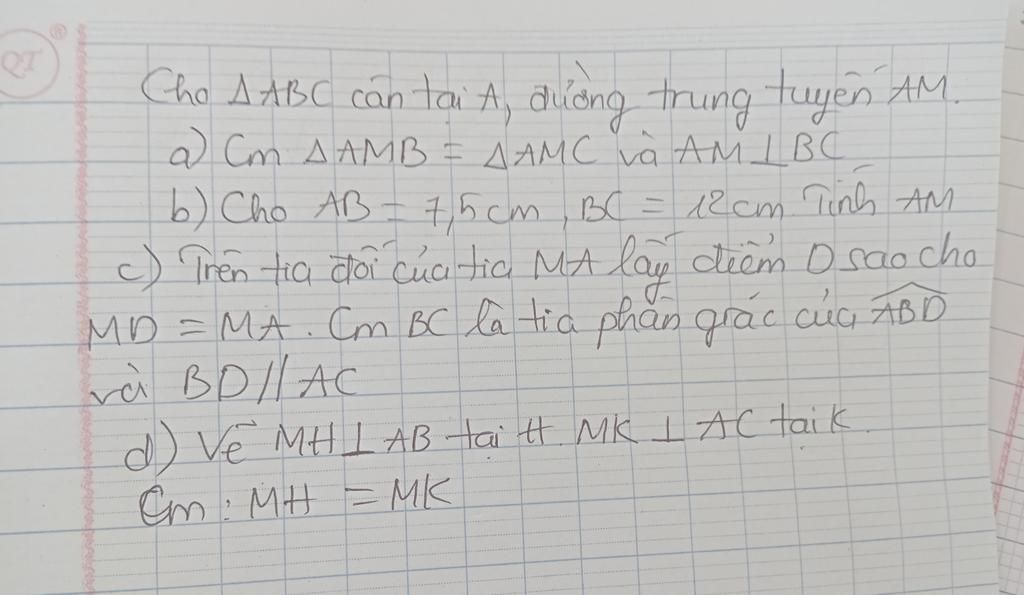 Cho ΔABC cân tại A, đường trung tuyến AM.
a) Cm ΔAMB = ΔAMC và AM⊥BC
b) Cho AB = 7,5cm, BC = 12cm Tính AM
c) Trên tia đối của tia MA lấy điểm D sao cho
MD = MA. Cm BC là tia phân giác của \widehat{ABD}
và BD//AC
d) Vẽ MH⊥AB tại H. MK ⊥ AC tại K.
Cm: MH = MK